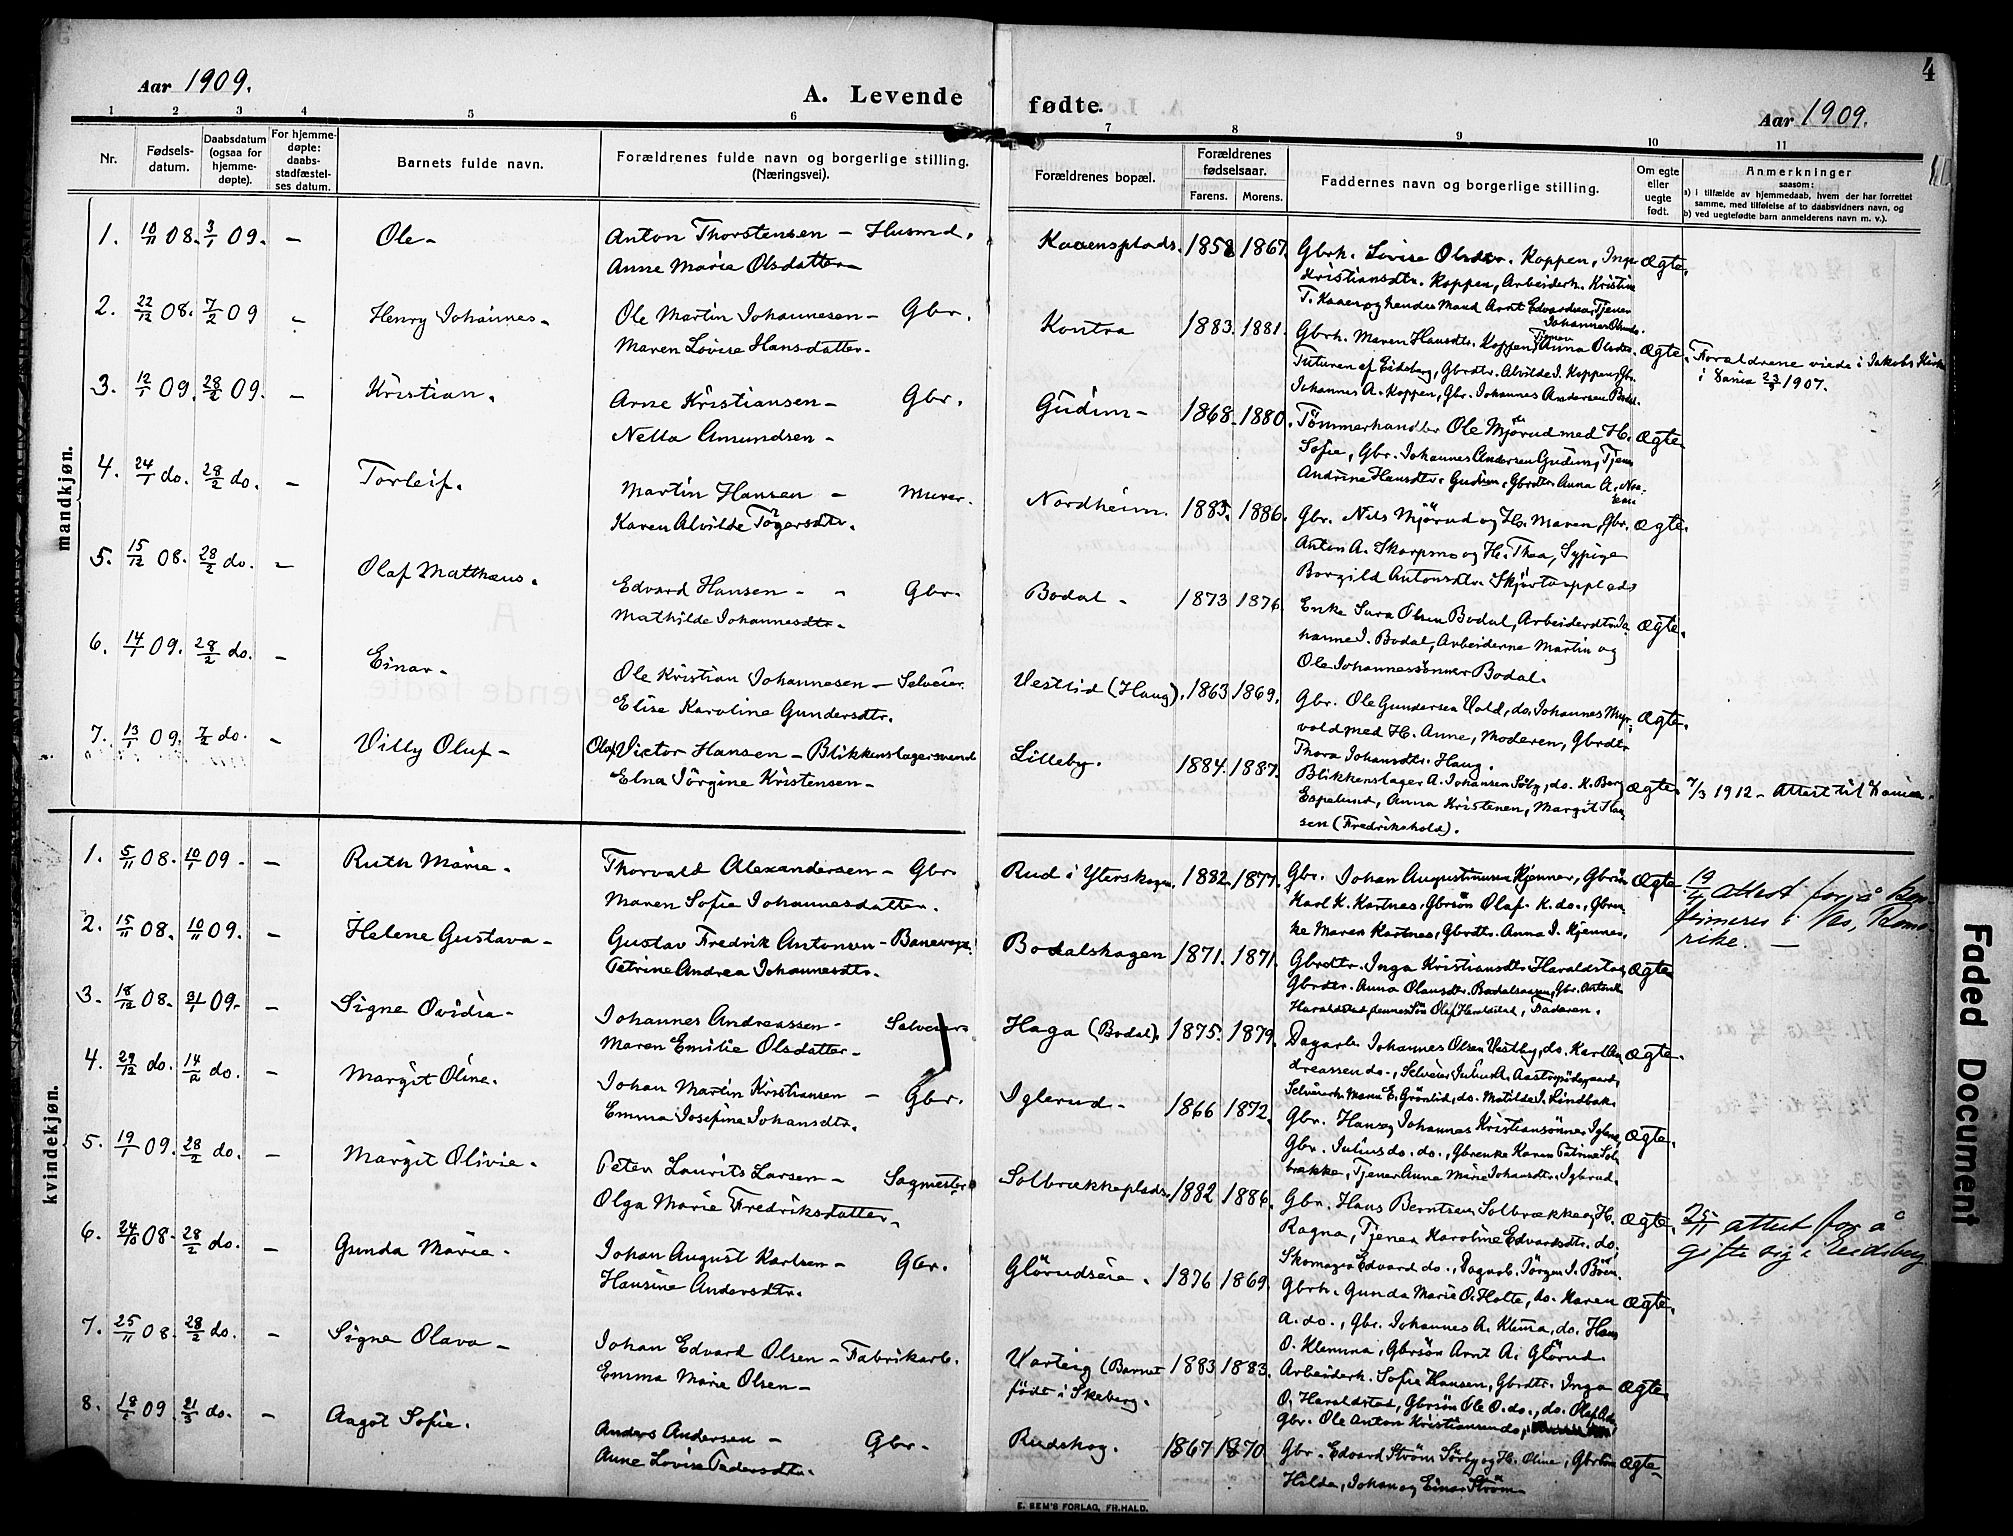 4
Aar 1909.
A. Levende fødte.
Aar 1909.
1 2 3 4 5 6 7 8 9 10 11
Nr.
Fødsels-
datum.
Daabsdatum
(ogsaa for
hjemme-
døpte).
For hjemme-
døpte:
daabs-
stadfæstel-
ses datum.
Barnets fulde navn.
Forældrenes fulde navn og borgerlige stilling.
(Næringsvei).
Forældrenes bopæl.
Forældrenes
fødselsaar.
Farens. Morens.
Faddernes navn og borgerlige stilling.
Om egte
eller
uegte
født.
Anmerkninger
saasom:
a) i tilfælde av hjemmedaab, hvem der har forrettet
samme, med tilføielse af to daabsvidners navn, og
b) ved uegtefødte barn anmelderens navn m. v.).
mandkjøn.
1. 10/11 08. 3/1 09. – Ole – Anton Thorstensen – Husmd. Kaaensplads. 1858 1867. Ægte.
Anne Marie Olsdatter –
Gbrh. Lovise Olsdtr. Koppen, Inga
Kristiansdtr. Koppen, Arbeiderh. Kristine
T. Kaaen og hendes Mand Arnt Edvardsen, Tjener
Johannes
2. 22/12 08. 7/2 09 – Henry Johannes – Ole Martin Johannesen – Gbr. Kontra 1883. 1881. Ægte.
Maren Lovise Hansdatter –
Gbrh. Maren Hansdtr. Koppen, Tjener Anna Olsdtr.
Tuturen af Eideberg, Gbrdtr. Alvilde I. Koppen, Gbr.
Johannes A. Koppen, Gbr. Johannes Andersen Bodal.
Forældrene viede i Jakobs Kirke
1907.
3. 12/1 09. 28/2 09. – Kristian. Arne Kristiansen – Gbr. Gudim – 1868. 1880. Ægte.
Netta Amundsen –
Tømmerhandler Ole Mjørud med H.
Sofie, Gbr. Johannes Andersen Gudim, Tjener
Andrine Hansdtr. Gudim, Gbrdtr. Anna A.
4. 24/1 do. 28/2 do. – Torleif. Martin Hansen – Murer. Nordheim. 1883. 1886. Ægte.
Karen Alvilde Tøgersdtr.
Gbr. Nils Mjørud og H. Maren, Gbr.
Anton A. Skarpsno og H. Thea, Sypige
Borgild Antonsdtr.
5. 15/12 08. 28/2 do. – Olaf Matthæus. Edvard Hansen – – Gbr. Bodal – 1873 1876. Ægte.
Mathilde Johannesdtr.
Enke Sara Olsen Bodal, Arbeiderdtr. Jo-
hanne J. Bodal, Arbeiderne Martin og
Ole Johannessønner Bodal.
6. 14/1 09. 28/2 do. – Einar. Ole Kristian Johannesen – Selveier. Vestlid (Haug). 1863 1869. Ægte.
Elise Karoline Gundersdtr.
Gbr. Ole Gundersen Vold, do. Johannes Myr-
vold med H. Anne, Moderen, Gbrdtr.
Thora Johansdtr. Haug.
7. 13/1 09. 7/2 do. – Villy Oluf – Olaf Victor Hansen – Blikkenslagersvend Lilleby. 1884. 1887. Ægte.
Elna Jörgine Kristensen –
Blikkenslager A. Johansen Solby, do. K. Berg
Espelund, Anna Kristensen, Margit Han-
sen (Fredrikshald).
7/3 1912 – Attest til
kvindekjøn.
1. 5/11 08. 10/1 09. – Ruth Marie. Thorvald Alexandersen – Gbr. Rud i Ytterskogen. 1882. 1877. Ægte.
Maren Sofie Johannesdatter.
Gbr. Johan Augustinusen Kjenner, Gbrsøn
Karl K. Kartnes, Gbrsøn Olaf K. do., Gbren-
ke Maren Kartnes, Gbrdtr. Anna I. Kjennes.
attest for å kon-
firmeres i
rike. –
2. 15/11 08. 10/11 09. – Helene Gustava – Gustav Fredrik Antonsen – Banevogt. Bodalshagen 1871. 1871. Ægte
Petrine Andrea Johannesdtr.
Gbrdtr. Inga Kristiansdtr. Haraldstad,
Gbrdtr. Anna Olausdtr. Bodalsaasen, Gbr. Anton
Haraldstad, dennes Søn Olaf Haraldstad, Faderen.
3. 18/12 08. 31/1 09. – Signe Ovidia – Johannes Andreassen – Selveier Haga (Bodal). 1875. 1879. Ægte.
Maren Emilie Olsdatter –
Dagarb. Johannes Olsen Vestby, do. Karl An-
dreassen do., Selveier Julius A. Aastorpødegaard,
Selveierh. Maria E. Grönlid, do. Matilde J. Lindbak.
4. 29/12 do. 14/2 do. – Margit Oline. Johan Martin Kristiansen – Gbr. Iglerud – 1866 1872. Ægte.
Emma Josefine Johansdtr.
Gbr. Hans og Johannes Kristiansønner Iglerud,
Gbr. Julius do. do., Gbrenke Karen Petrine Sol-
brække, Tjener Anna Marie Johansdtr. Iglerud.
5. 19/1 09. 28/2 do. – Margit Olivie. Peter Laurits Larsen – Sagmester Solbrækkeplads. 1882 1886. Ægte.
Olga Marie Fredriksdatter –
Gbr. Hans Berntsen Solbrække og H.
Ragna, Tjener Karoline Edvardsdtr. do.
Skomager Edvard do., Dagarb. Jörgen I. Böen.
25/11 attest for å
gifte sig i Eidsberg
6. 24/10 08. 28/2 do. – Gunda Marie. Johan August Karlsen – Gbr. Glörudseie. 1876 1869. Ægte.
Hansine Andersdtr.
Gbrh. Gunda Marie O. Holte, do. Maren
A. do., Gbr. Johannes A. Klema, do. Hans
O. Klemma, Gbrsøn Arnt A. Glörud.
7. 25/11 08. 28/2 do. – Signe Olava – Johan Edvard Olsen – Fabrikarb. Varteig (Barnet 1883 1883. Ægte.
Emma Marie Olsen – født i Skeberg.
Arbeiderh. Sofie Hansen, Gbrdtr. Inga
O. Haraldstad, Gbrsøn Ole O. do., do. Olaf
Gbr. Ole Anton Kristiansen do.
8. 18/2 09. 21/3 do. – Aagot Sofie. Anders Andersen – Gbr. Rudskog. 1867 1870. Ægte.
Anne Lovise Pedersdtr.
Gbr. Edvard Ström Sörby og H. Oline, Gbrbörn
Hilda, Johan og Einar Ström –
E. SEM'S FORLAG, FR.HALD.
Faded Document